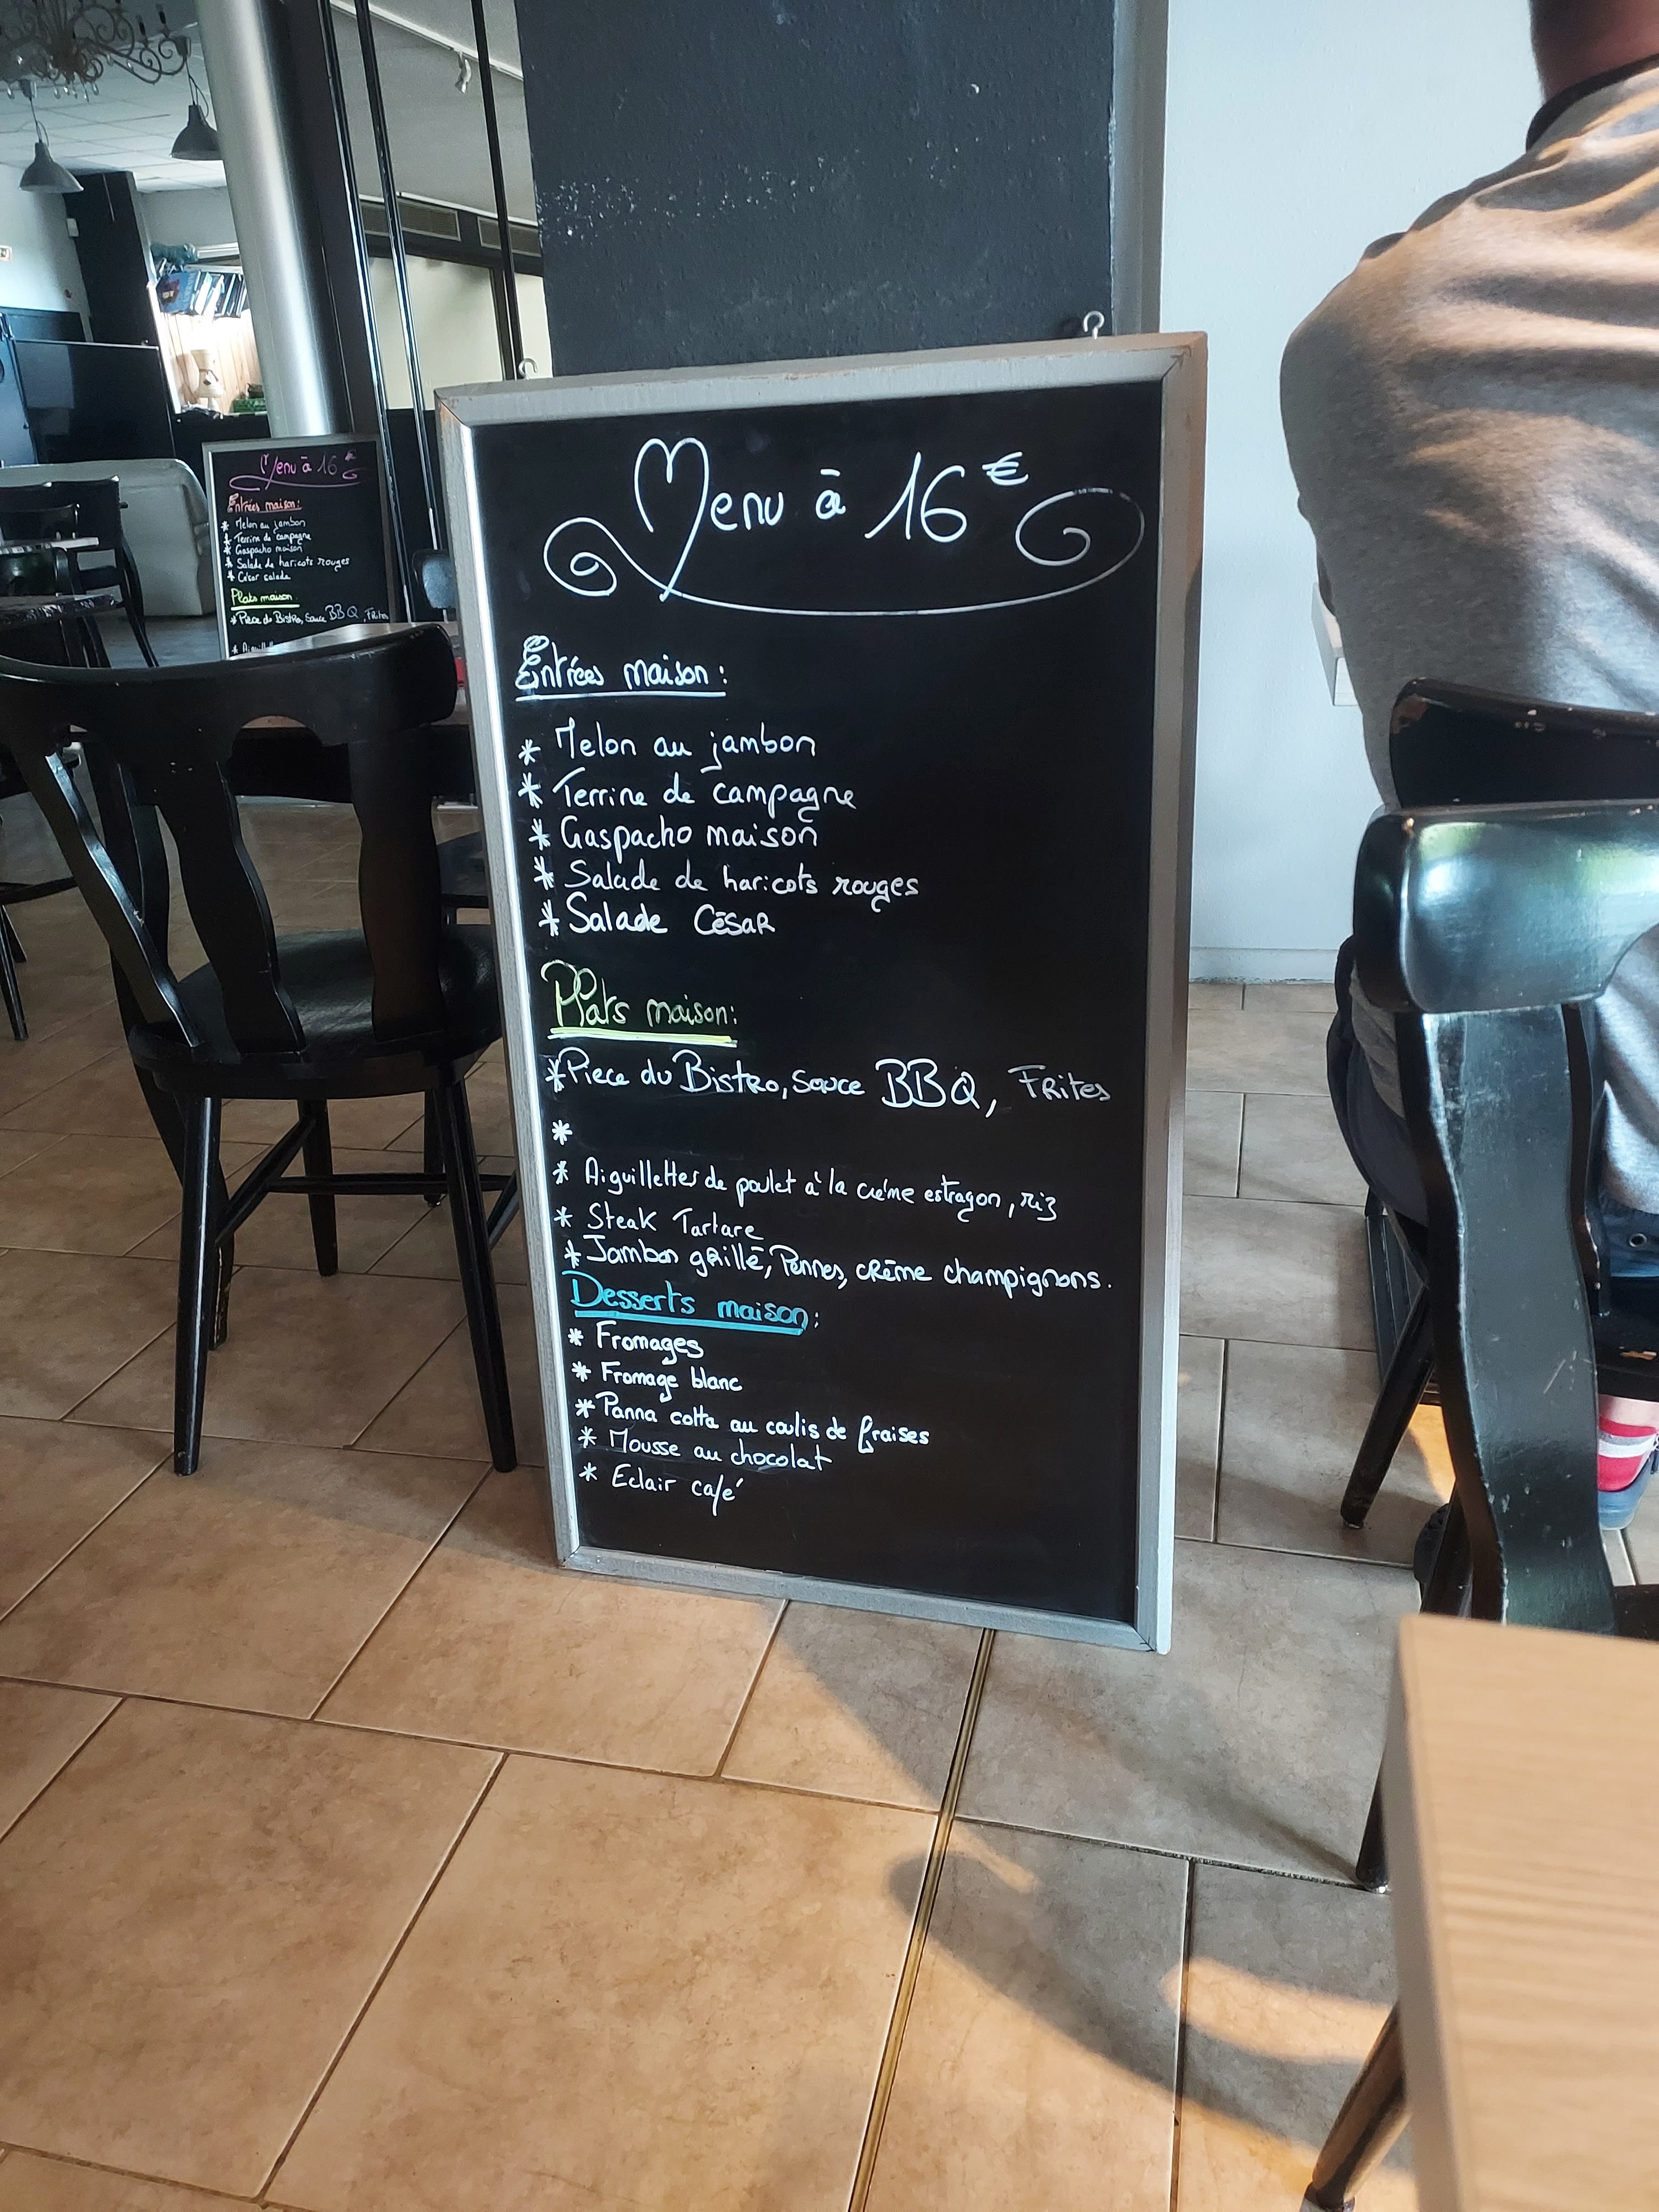 Menu à 16€
Entrées maison :
* Melon au jambon
* Terrine de campagne
* Gaspacho maison
* Salade de haricots rouges
* Salade César
Plats maison :
* Piece du Bistro, sauce BBQ, Frites
*
* Aiguillettes de poulet à la crème estragon, riz
* Steak Tartare
* Jambon grillé, Pennes, crème champignons.
Desserts maison :
* Fromages
* Fromage blanc
* Panna cotta au coulis de fraises
* Mousse au chocolat
* Eclair café
Menu à 16€
Entrées maison :
* Melon au jambon
* Terrine de campagne
* Gaspacho maison
* Salade de haricots rouges
* César salade
Plats maison
* Piece du Bistro, Sauce BBQ, Frites